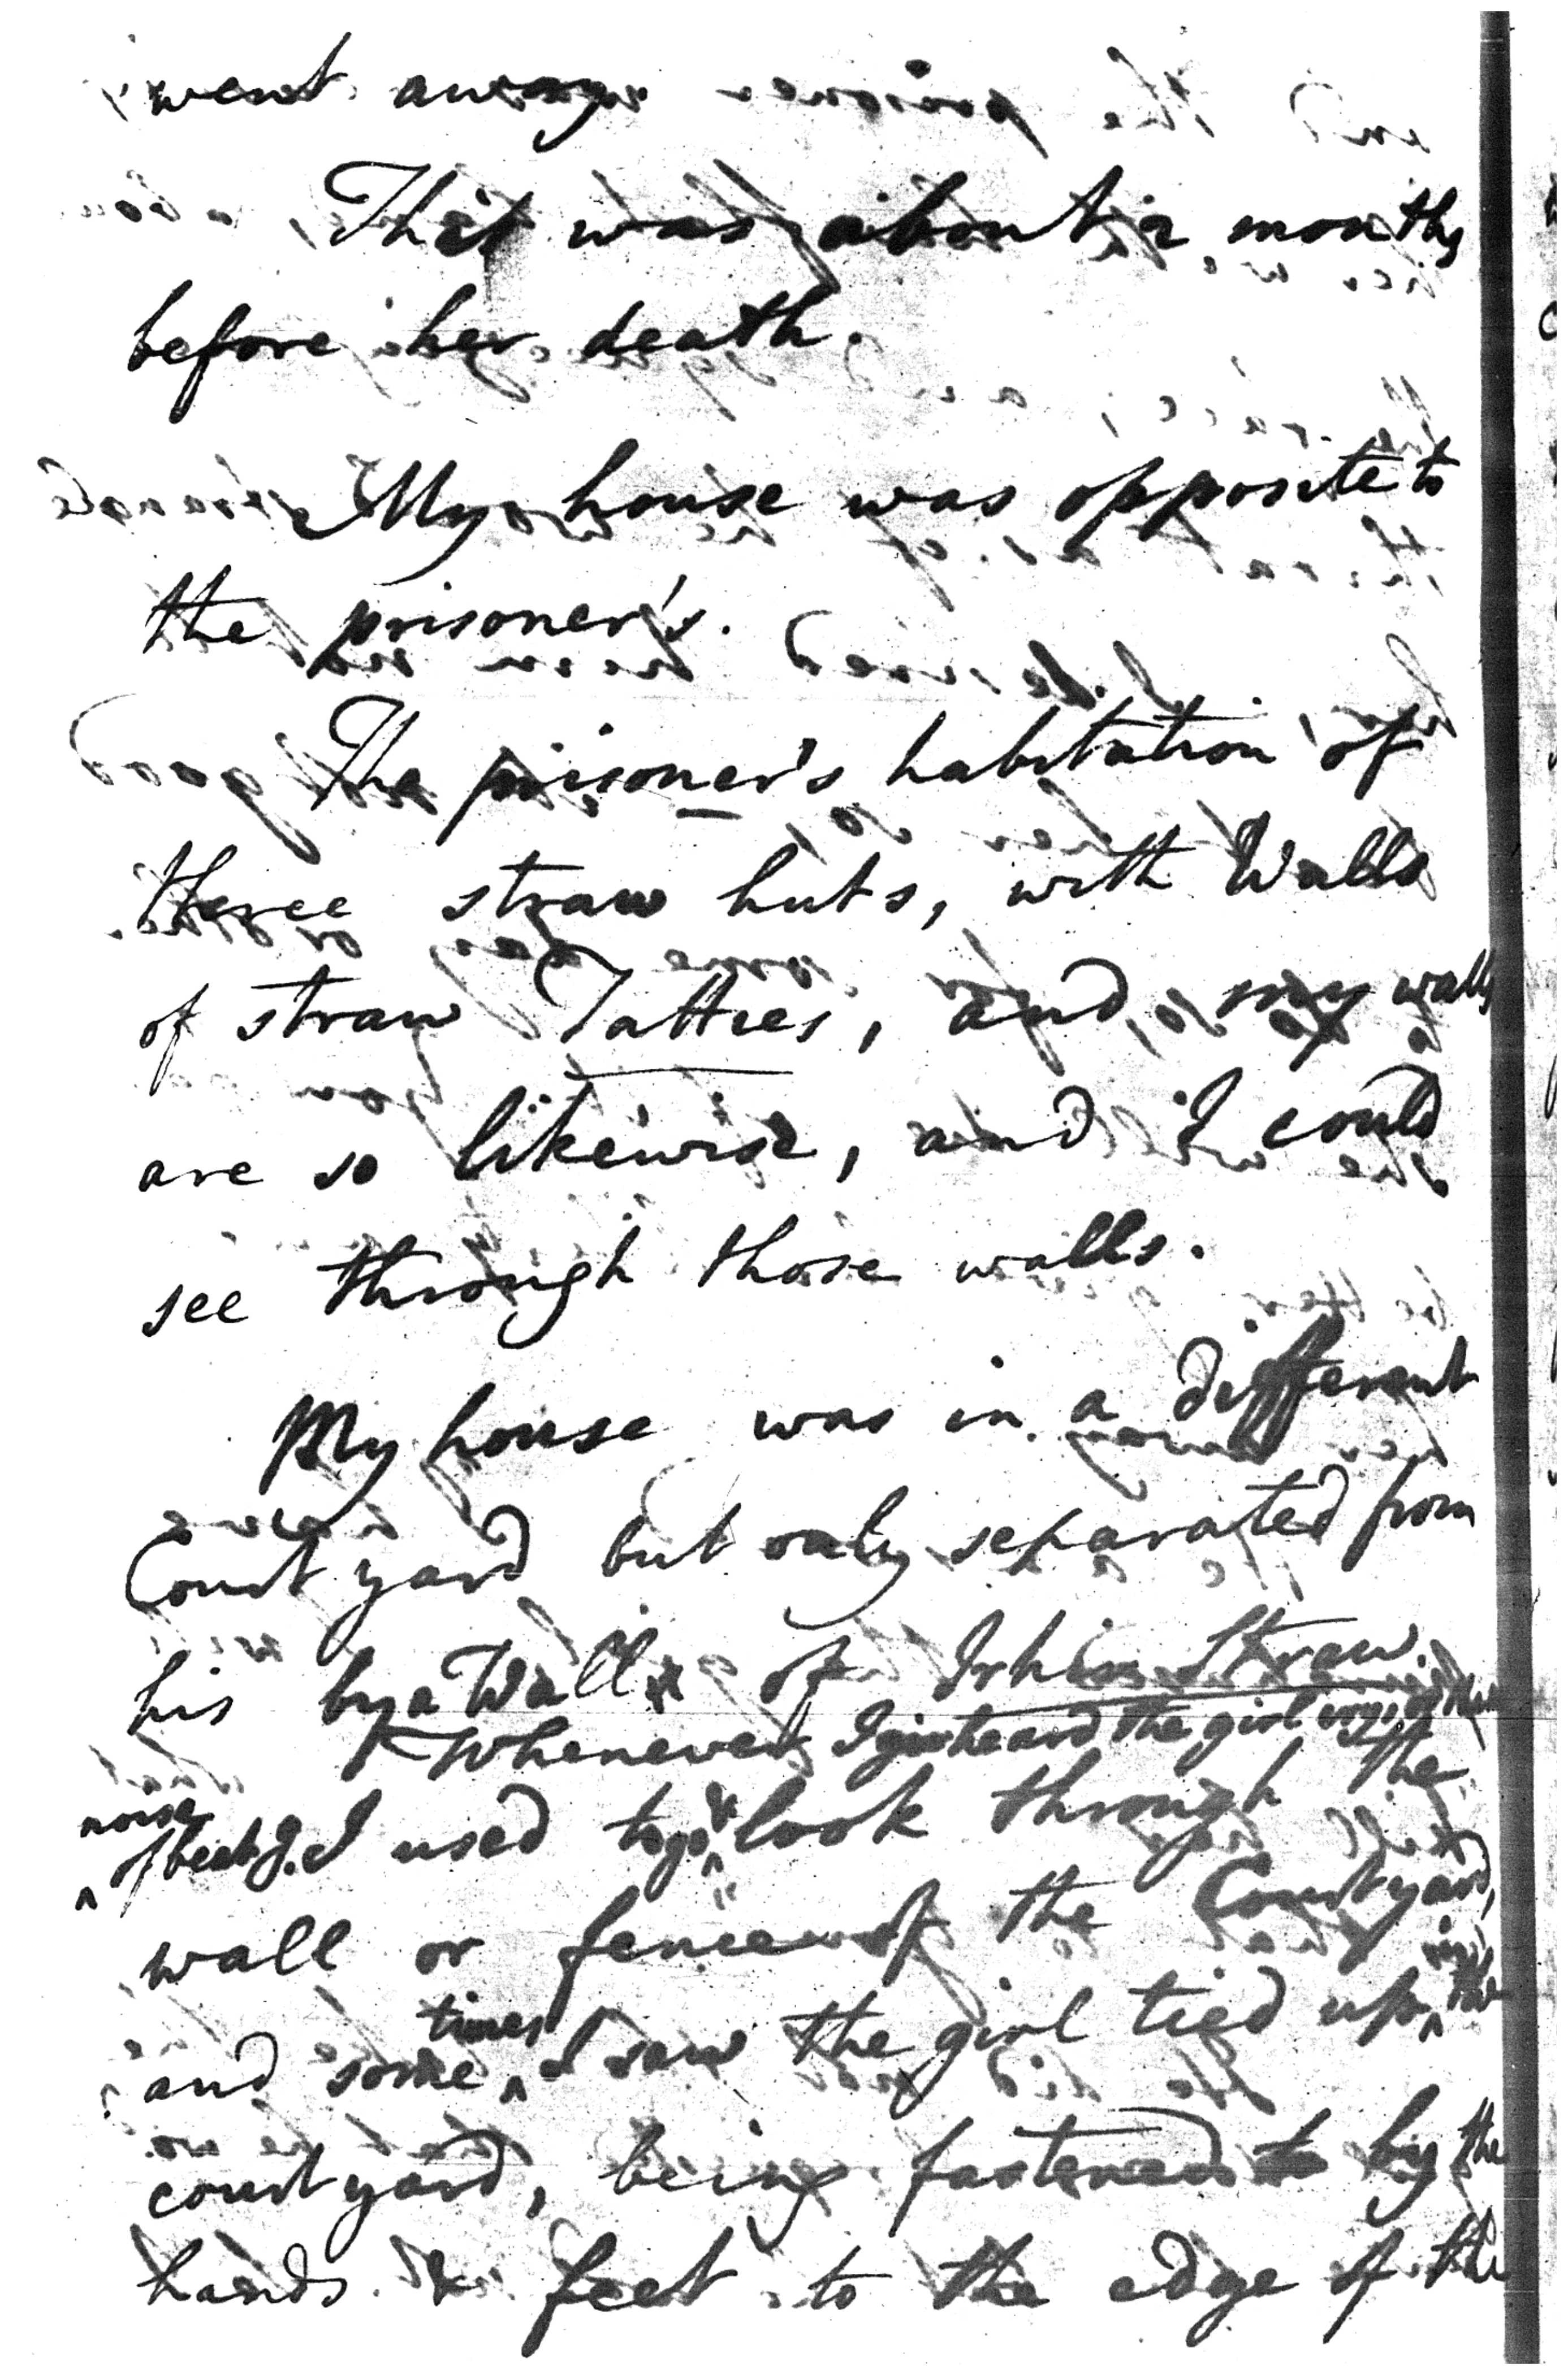 went away.
That was about 2 months
before her death.
My house was opposite to
the prisoner's.
The prisoner's habitation of
three straw huts, with Walls
of straw Tatties, and my walls
are so likewise, and I could
see through those walls.
My house was in a different
Court yard but only separated from
his by a Wall of Straw.
Whenever I heard the girl crying or the
noise
of beatg. I used to go & look through the
wall or fence of the Court yard,
and some times I saw the girl tied up in the
court yard, being fastened by the
hands & feet to the edge of the